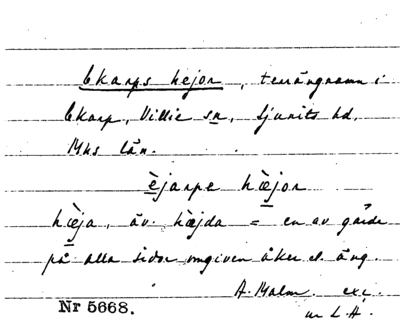 Ekarps hejor, terrängnamn i
Ekarp, Villie sn, Ljunits hd,
Mhs län.
èjarpe hæ̀jor
hæ̀ja, äv. hæ̀jda = en av gärde
på alla sidor omgiven åker el. äng.
A. Malm. exc.
L. H.
Nr 5668.